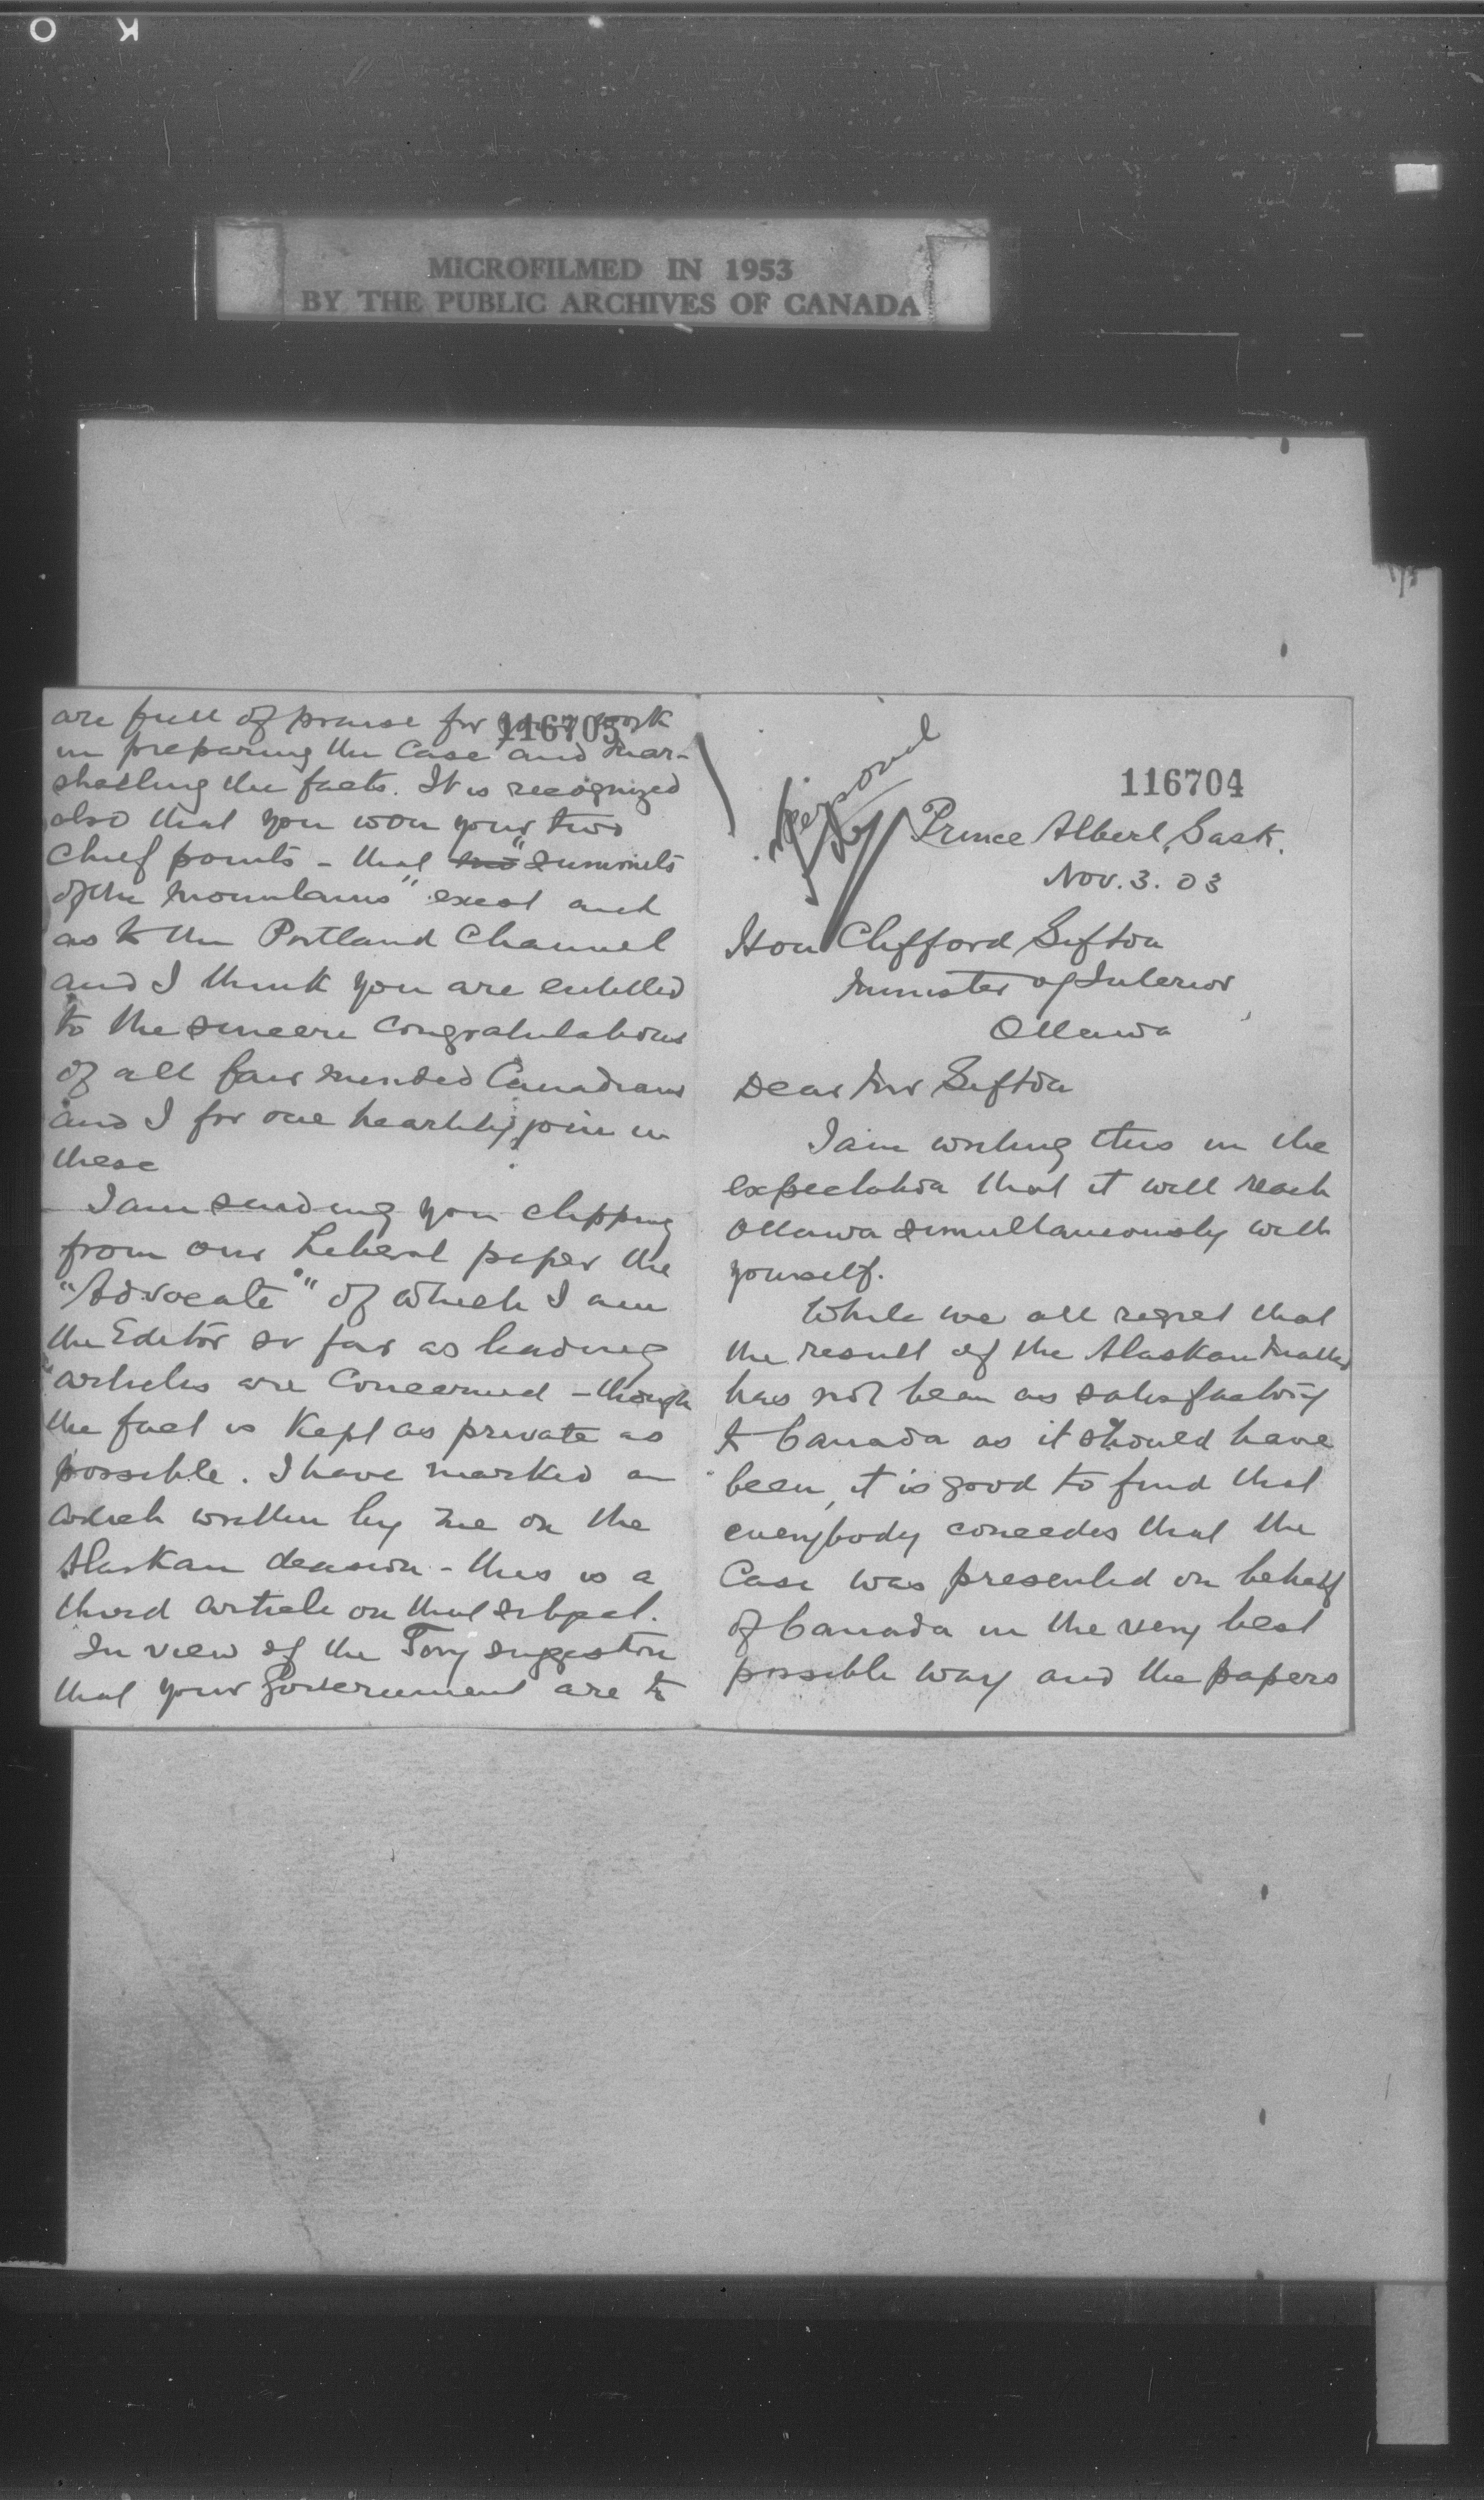 O K
MICROFILMED IN 1953
BY THE PUBLIC ARCHIVES OF CANADA
116704
Personal
Prince Albert, Sask.
Nov. 3. 03
Hon Clifford Sifton
Minister of Interior
Ottawa
Dear Mr Sifton
I am writing this in the
expectation that it will reach
Ottawa simultaneously with
yourself.
While we all regret that
the result of the Alaskan matter
has not been as satisfactory
to Canada as it should have
been, it is good to find that
everybody concedes that the
Case was presented on behalf
of Canada in the very best
possible way and the papers
116705
are full of praise for your work
in preparing the Case and mar-
shalling the facts. It is recognized
also that you won your two
chief points - that "summits
of the mountains" exist and
as to the Portland Channel
and I think you are entitled
to the sincere congratulations
of all fair minded Canadians
and I for one heartily join in
these
I am sending you clipping
from our Liberal paper the
"Advocate" of which I am
the Editor so far as leading
articles are concerned - though
the fact is kept as private as
possible. I have marked an
article written by me on the
Alaskan decision - this is a
third article on that subject.
In view of the Tory suggestion
that your Government are to